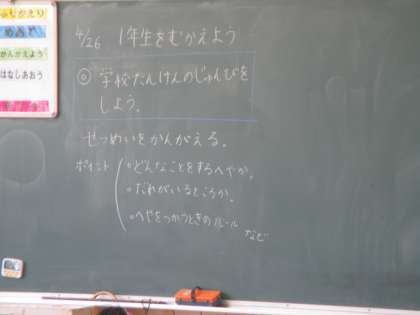 ふりかえり
めあて
かんがえよう
はなしあおう
4/26 1年生をむかえよう
◎ 学校たんけんのじゅんびを
しよう。
せつめいをかんがえる。
ポイント
・どんなことをするへやか。
・だれがいるところか。
・へやをつかうときのルール
など